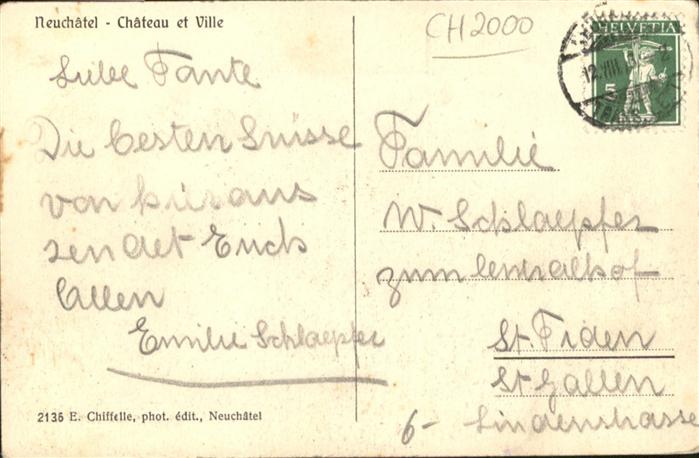 Neuchâtel - Château et Ville
CH2000
HELVETIA
5
Liebe Tante
Die besten Grüsse
von hier aus
sendet Euch
Allen
Emilie Schlaepfer
Familie
W. Schlaepfer
zum Centralhof
St. Fiden
St Gallen
6- Lindenstrasse
2136 E. Chiffelle, phot. édit., Neuchâtel